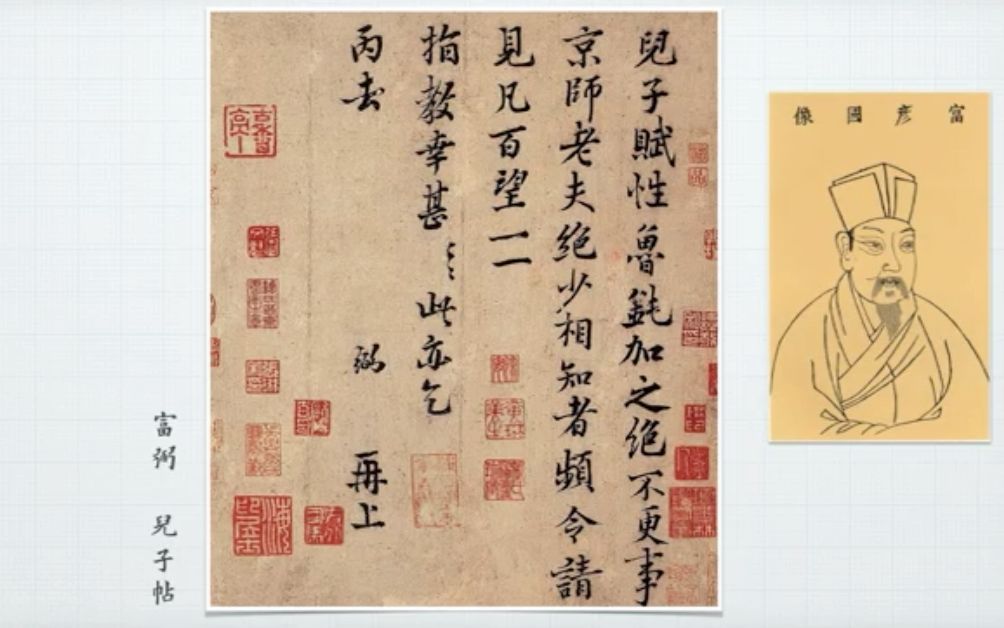 兒子賦性魯鈍加之絕不更事
京師老夫絕少相知者頻令請
見凡百望一一
指教幸甚〻此亦乞
丙去 弼 再上
富彥國像
富弼 兒子帖